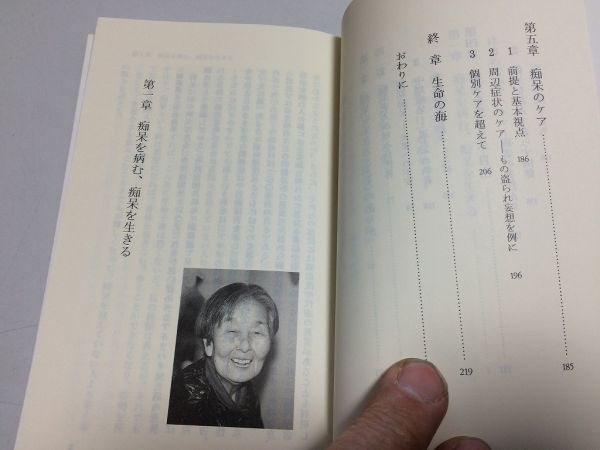 第五章 痴呆のケア……185
1 前提と基本視点 186
2 周辺症状のケア——もの盗られ妄想を例に 196
3 個別ケアを超えて 206
終章 生命の海……219
おわりに……
第一章 痴呆を病む、痴呆を生きる